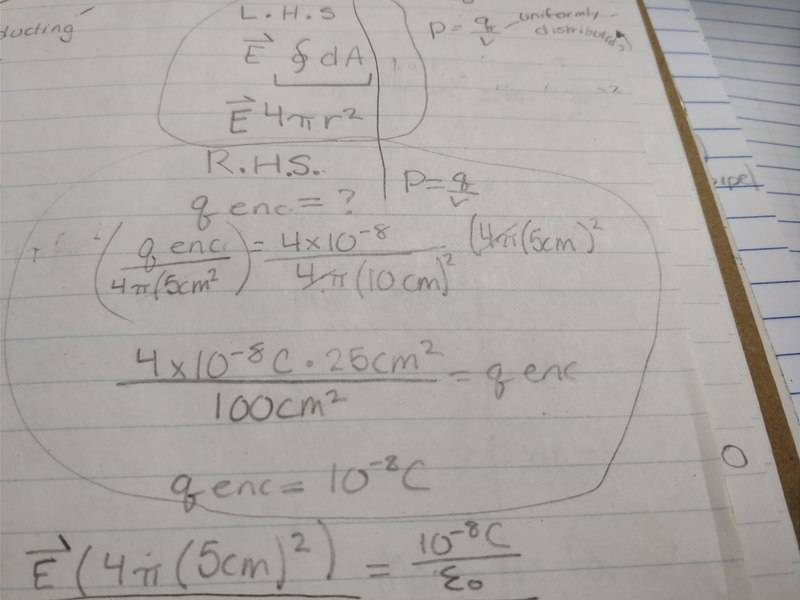 ducting
L.H.S
E⃗ ∮dA
E⃗ 4πr²
P = q/v uniformly distributed
R.H.S.
P = q/v
q enc = ?
(q enc / 4π(5cm²) = 4×10⁻⁸ / 4π(10cm)² (4π(5cm)²
4×10⁻⁸C · 25cm² / 100cm² = q enc
q enc = 10⁻⁸C
E⃗ (4π(5cm)²) = 10⁻⁸C / ε₀